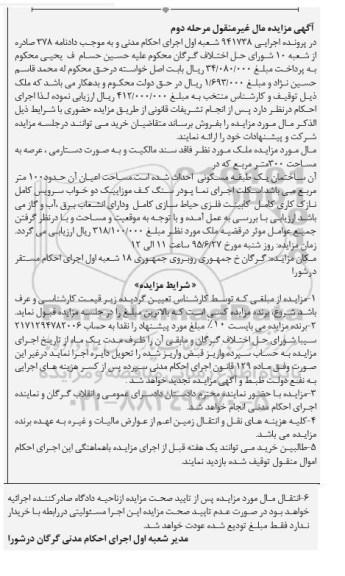 آگهی مزایده مال غیرمنقول مرحله دوم
در پرونده اجرایی ۹۴۱۷۳۸ شعبه اول اجرای احکام مدنی و به موجب دادنامه ۳۷۸ صادره
از شعبه ۱۰ شورای حل اختلاف گرگان محکوم علیه حسین حسام ف یحیی محکوم
به پرداخت مبلغ ۳۴/۰۸۰/۰۰۰ ریال بابت اصل خواسته درحق محکوم له محمد قاسم
حسین نژاد و مبلغ ۱/۶۹۳/۰۰۰ ریال در حق دولت محکوم و بدهکار می باشد که ملک
ذیل توقیف و کارشناس منتخب به مبلغ ۴۱۲/۰۰۰/۰۰۰ ریال ارزیابی نموده لذا اجرای
احکام درنظر دارد پس از انجام تشریفات قانونی از طریق مزایده حضوری با شرایط ذیل
الذکر مال مورد مزایده را بفروش برساند متقاضیان خرید می توانند درجلسه مزایده
شرکت و پیشنهادات خود را ارائه نمایند.
مال مورد مزایده ملک مورد نظر فاقد سند مالکیت و به صورت دستارمی ، عرصه به
مساحت ۳۰۰متر مربع که در
آن ساختمان یک طبقه مسکونی احداث شده است مساحت اعیان آن حدود۱۰۰ متر
مربع می باشد اسکلت اجرای نما پودر سنگ کف موزاییک دو خواب سرویس کامل
نازک کاری کامل کابینت فلزی حیاط سازی کامل ودارای انشعاب برق ،آب و گاز می
باشد ارزیابی با بررسی به عمل آمده و با توجه به موقعیت و مساحت و با درنظر گرفتن
جمیع عوامل موثر درقضیه ملک مورد نظر مبلغ ۳۱۸/۱۰۰/۰۰۰ ریال ارزیابی می گردد.
زمان مزایده: روز شنبه مورخ ۹۵/۶/۲۷ ساعت ۱۱ الی ۱۲
مکان مزایده: گرگان خ جمهوری روبروی جمهوری ۱۸ شعبه اول اجرای احکام مستقر
درشورا
« شرایط مزایده»
۱-مزایده از مبلغی که توسط کارشناس تعیین گردیده زیر قیمت کارشناسی و عرف
باشد شروع، برنده مزایده کسی است که بالاترین مبلغ را در جلسه مزایده قبول نماید.
۲-برنده مزایده می بایست ۱۰٪ مبلغ مورد پیشنهاد را نقدا به حساب ۲۱۷۱۲۹۴۷۸۲۰۰۶
سیبا شورای حل اختلاف گرگان و مابقی آن را ظرف مدت یک ماه از تاریخ اجرای
مزایده به حساب سپرده واریز قبض واریز شده را تحویل دایره اجرا نماید درغیر این
صورت وفق ماده ۱۲۹ قانون اجرای احکام مدنی سپرده پس از کسر هزینه های اجرایی
به نفع دولت ضبط و آگهی مزایده تجدید خواهد شد.
۳-مزایده با حضور نماینده محترم دادستان دادسرای عمومی و انقلاب گرگان و نماینده
اجرای احکام مدنی انجام خواهد شد.
۴-کلیه هزینه های نقل و انتقال زمین اعم از عوارض مالیات و غیره به عهده برنده
مزایده می باشد.
۵-طالبین خرید می توانند یک هفته قبل از اجرای مزایده باهماهنگی این اجرای احکام
اموال منقول توقیف شده بازدید نمایند.
۶-انتقال مال مورد مزایده پس از تایید صحت مزایده ازناحیه دادگاه صادرکننده اجرائیه
خواهد بود در صورت عدم تایید صحت مزایده این اجرا مسئولیتی دررابطه با خریدار
ندارد فقط مبلغ تودیع شده عودت خواهد شد.
مدیر شعبه اول اجرای احکام مدنی گرگان درشورا